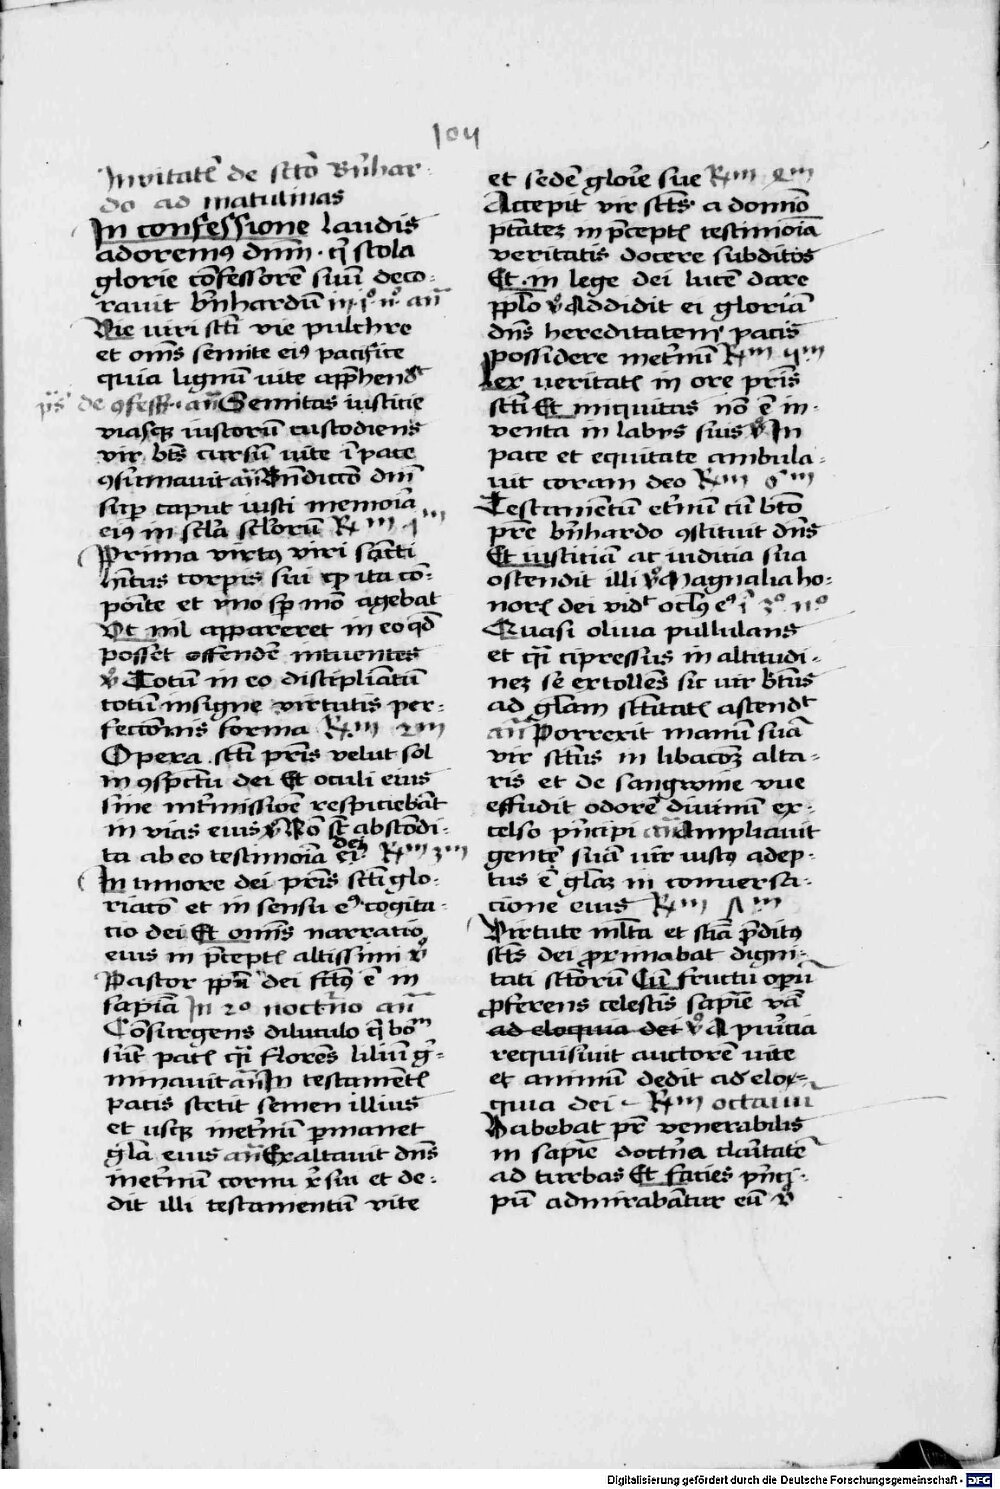 104
Invitatē de sctō Bn̄har-
do ad matutinas
In confessione laudis
adoremꝰ dnm̄ · qͥ stola
glorie cōfessorē suū deco-
ravit bn̄hardū in pͦ nͦ an̄
Vie viri sctī vie pulchre
et om̄s semite eiꝰ pacifice
quia lignū vite app̄hendͭ
ps̄ de ꝯfess̄ · an̄ Semitas iusticie
viasqꝫ iustorū custodiens
vir bt̄s cursū vite ī pace
ꝯsūmavit an̄ Bn̄dictō dnī
sup̄ caput iusti memoīa
eiꝰ in scl̄a scl̄orū R̄m pͫ
Prima virtꝰ viri sancti
hītus corpis sui qͥ ita cō-
poīte et vno sp̄ mō agebat
Vt nil appareret in eo qd̄
posset offendē intuentes
℣ Totū in eo discipliātū
totū insigne virtutis per-
fectiōnis forma R̄m 2m
Opera sctī pr̄is velut sol
in ꝯsp̄ctu dei Et oculi eius
sine int̄missiōe respiciebāt
in vias eius ℣ Nō st̄ abscōdi-
ta ab eo testimoīa dei R̄m 3m
In timore dei pr̄is sctī glo-
riatō et in sensu eꝰ cogita-
tio dei Et om̄is narratio
eius in p̄cept̄ altissimi ℣
Pastor pp̄li dei fctꝰ ē in
sapīa In 2ͦ noct̄no an̄
Cōsurgens diluculo qͥ bōm
sūt pat̄ qͣi florēs liliū ḡ-
minavit an̄ In testamēt̄
pacis stetit semen illius
et usqꝫ inet̄nū p̄manet
gl̄a eius an̄ Exaltavit dn̄s
inet̄nū cornu xͬsti et de-
dit illi testamentū vite
et sedē gloīe sue R̄m 4m
Accepit vir sct̄s · a domīo
ptātez in p̄cept̄ testimoīa
veritatis docere subditos
Et in lege dei lucē dare
pplo ℣ Addidit ei gloriā
dn̄s hereditatem pacis
possidere inet̄nū R̄m 5m
Lex veritat̄ in ore pr̄is
sctī Et iniquitas nō ē in-
venta in labiis suis ℣ In
pace et equitate ambula-
vit coram deo R̄m 6m
Testamentū et̄nū cū btō
pr̄e bn̄hardo ꝯstituit dn̄s
Et iusticiā ac iudicia sua
ostendit illi ℣ Magnalia ho-
nor̄ dei vidͭ oclꝰ eꝰ ī 3ͦ nͦ
Quasi oliva pullulans
et qͣi cipressus in altitudi-
nez se extollēs sic vir bt̄us
ad gl̄am sctītat̄ ascendͭ
an̄ Porrexit manū suā
vir sct̄us in libacōez alta-
ris et de sangwine vue
effudit odorē divinū ex-
celso pn̄cipi an̄ Ampliavit
gentē suā vir iustꝰ adep-
tus ē gl̄az in conversa-
cione eius R̄m 7m
Virtute mltā et sciā p̄ditꝰ
sct̄s dei proximabat digni-
tati sctōrū Cū fructū opū
p̄ferens celestis sapīe vā
ad eloquia dei ℣ A pu̇icia
requisivit auctorē vite
et animū dedit ad elo-
quia dei R̄m octavū
Habebat pr̄ venerabilis
in sapīe doctrīa claritatē
ad turbas Et facies pn̄ci-
pū admirabātur eū ℣
Digitalisierung gefördert durch die Deutsche Forschungsgemeinschaft - DFG